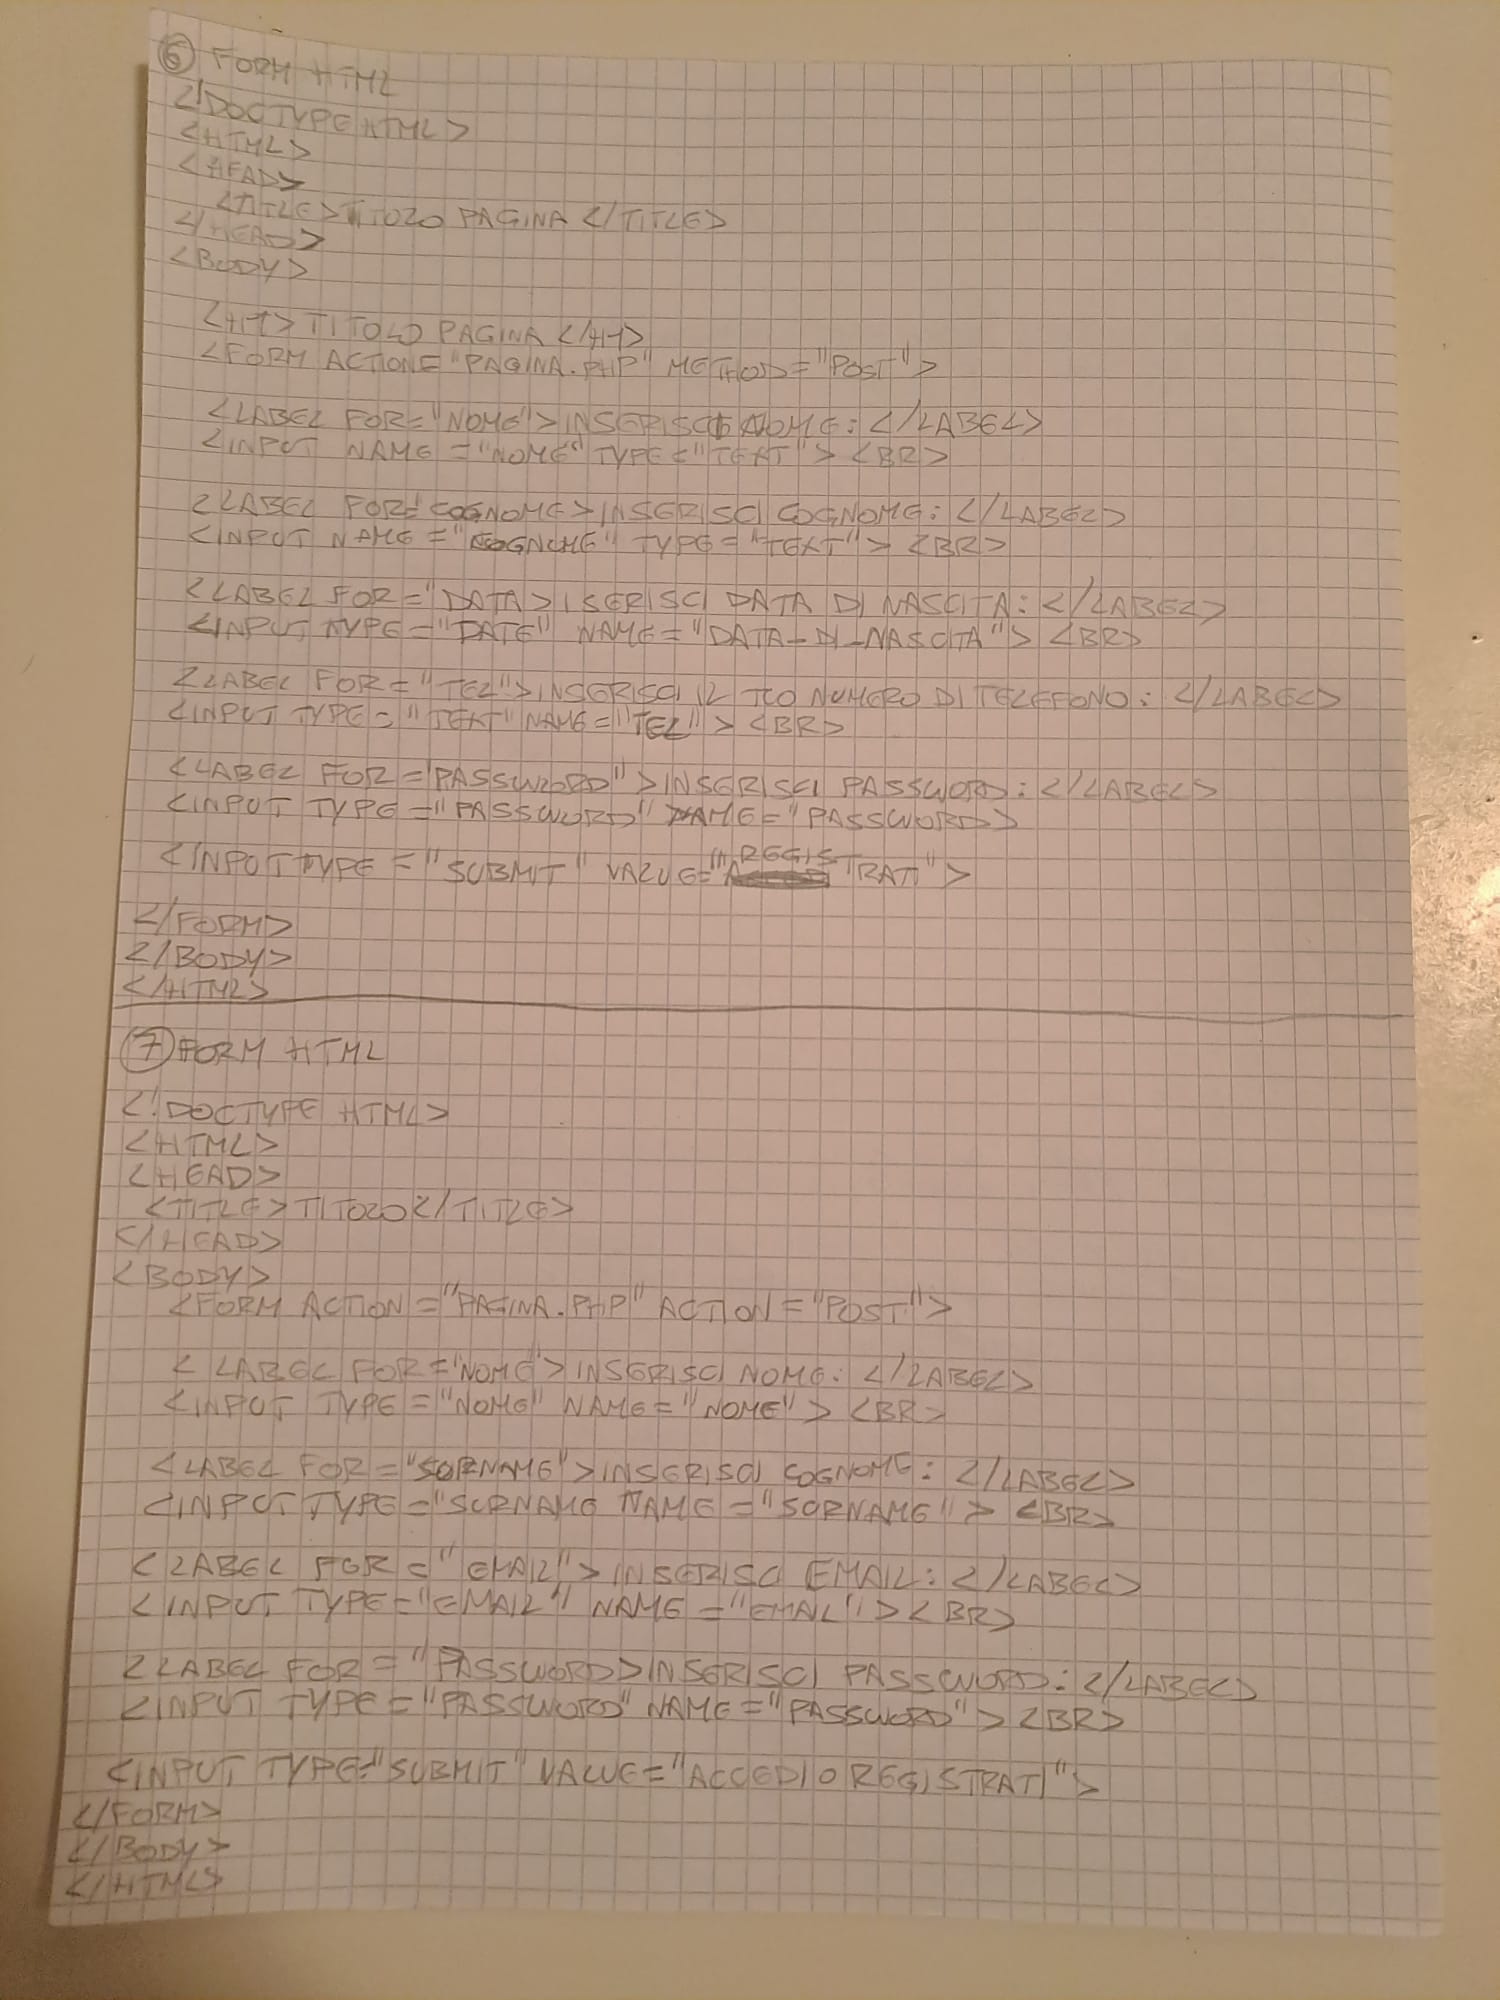 6 FORM HTML
<!DOCTYPE HTML>
<HTML>
<HEAD>
<TITLE>TITOLO PAGINA </TITLE>
</HEAD>
<BODY>
<H1> TITOLO PAGINA </H1>
<FORM ACTION="PAGINA.PHP" METHOD="POST">
<LABEL FOR="NOME">INSERISCI NOME: </LABEL>
<INPUT NAME="NOME" TYPE="TEXT"> <BR>
<LABEL FOR="COGNOME>INSERISCI COGNOME: </LABEL>
<INPUT NAME="COGNOME" TYPE="TEXT"> <BR>
<LABEL FOR="DATA>ISERISCI DATA DI NASCITA: </LABEL>
<INPUT TYPE="DATE" NAME="DATA-DI-NASCITA"> <BR>
<LABEL FOR="TEL">INSERISCI IL TUO NUMERO DI TELEFONO: </LABEL>
<INPUT TYPE="TEXT" NAME="TEL"> <BR>
<LABEL FOR="PASSWORD">INSERISCI PASSWORD: </LABEL>
<INPUT TYPE="PASSWORD" NAME="PASSWORD>
<INPUT TYPE="SUBMIT" VALUE="REGISTRATI">
</FORM>
</BODY>
</HTML>
7 FORM HTML
<!DOCTYPE HTML>
<HTML>
<HEAD>
<TITLE>TITOLO</TITLE>
</HEAD>
<BODY>
<FORM ACTION="PAGINA.PHP" ACTION="POST">
<LABEL FOR="NOME">INSERISCI NOME: </LABEL>
<INPUT TYPE="NOME" NAME="NOME"> <BR>
<LABEL FOR="SURNAME">INSERISCI COGNOME: </LABEL>
<INPUT TYPE="SURNAME NAME="SURNAME"> <BR>
<LABEL FOR="EMAIL">INSERISCI EMAIL: </LABEL>
<INPUT TYPE="EMAIL" NAME="EMAIL"> <BR>
<LABEL FOR="PASSWORD>INSERISCI PASSWORD: </LABEL>
<INPUT TYPE="PASSWORD" NAME="PASSWORD"> <BR>
<INPUT TYPE="SUBMIT" VALUE="ACCEDI O REGISTRATI">
</FORM>
</BODY>
</HTML>